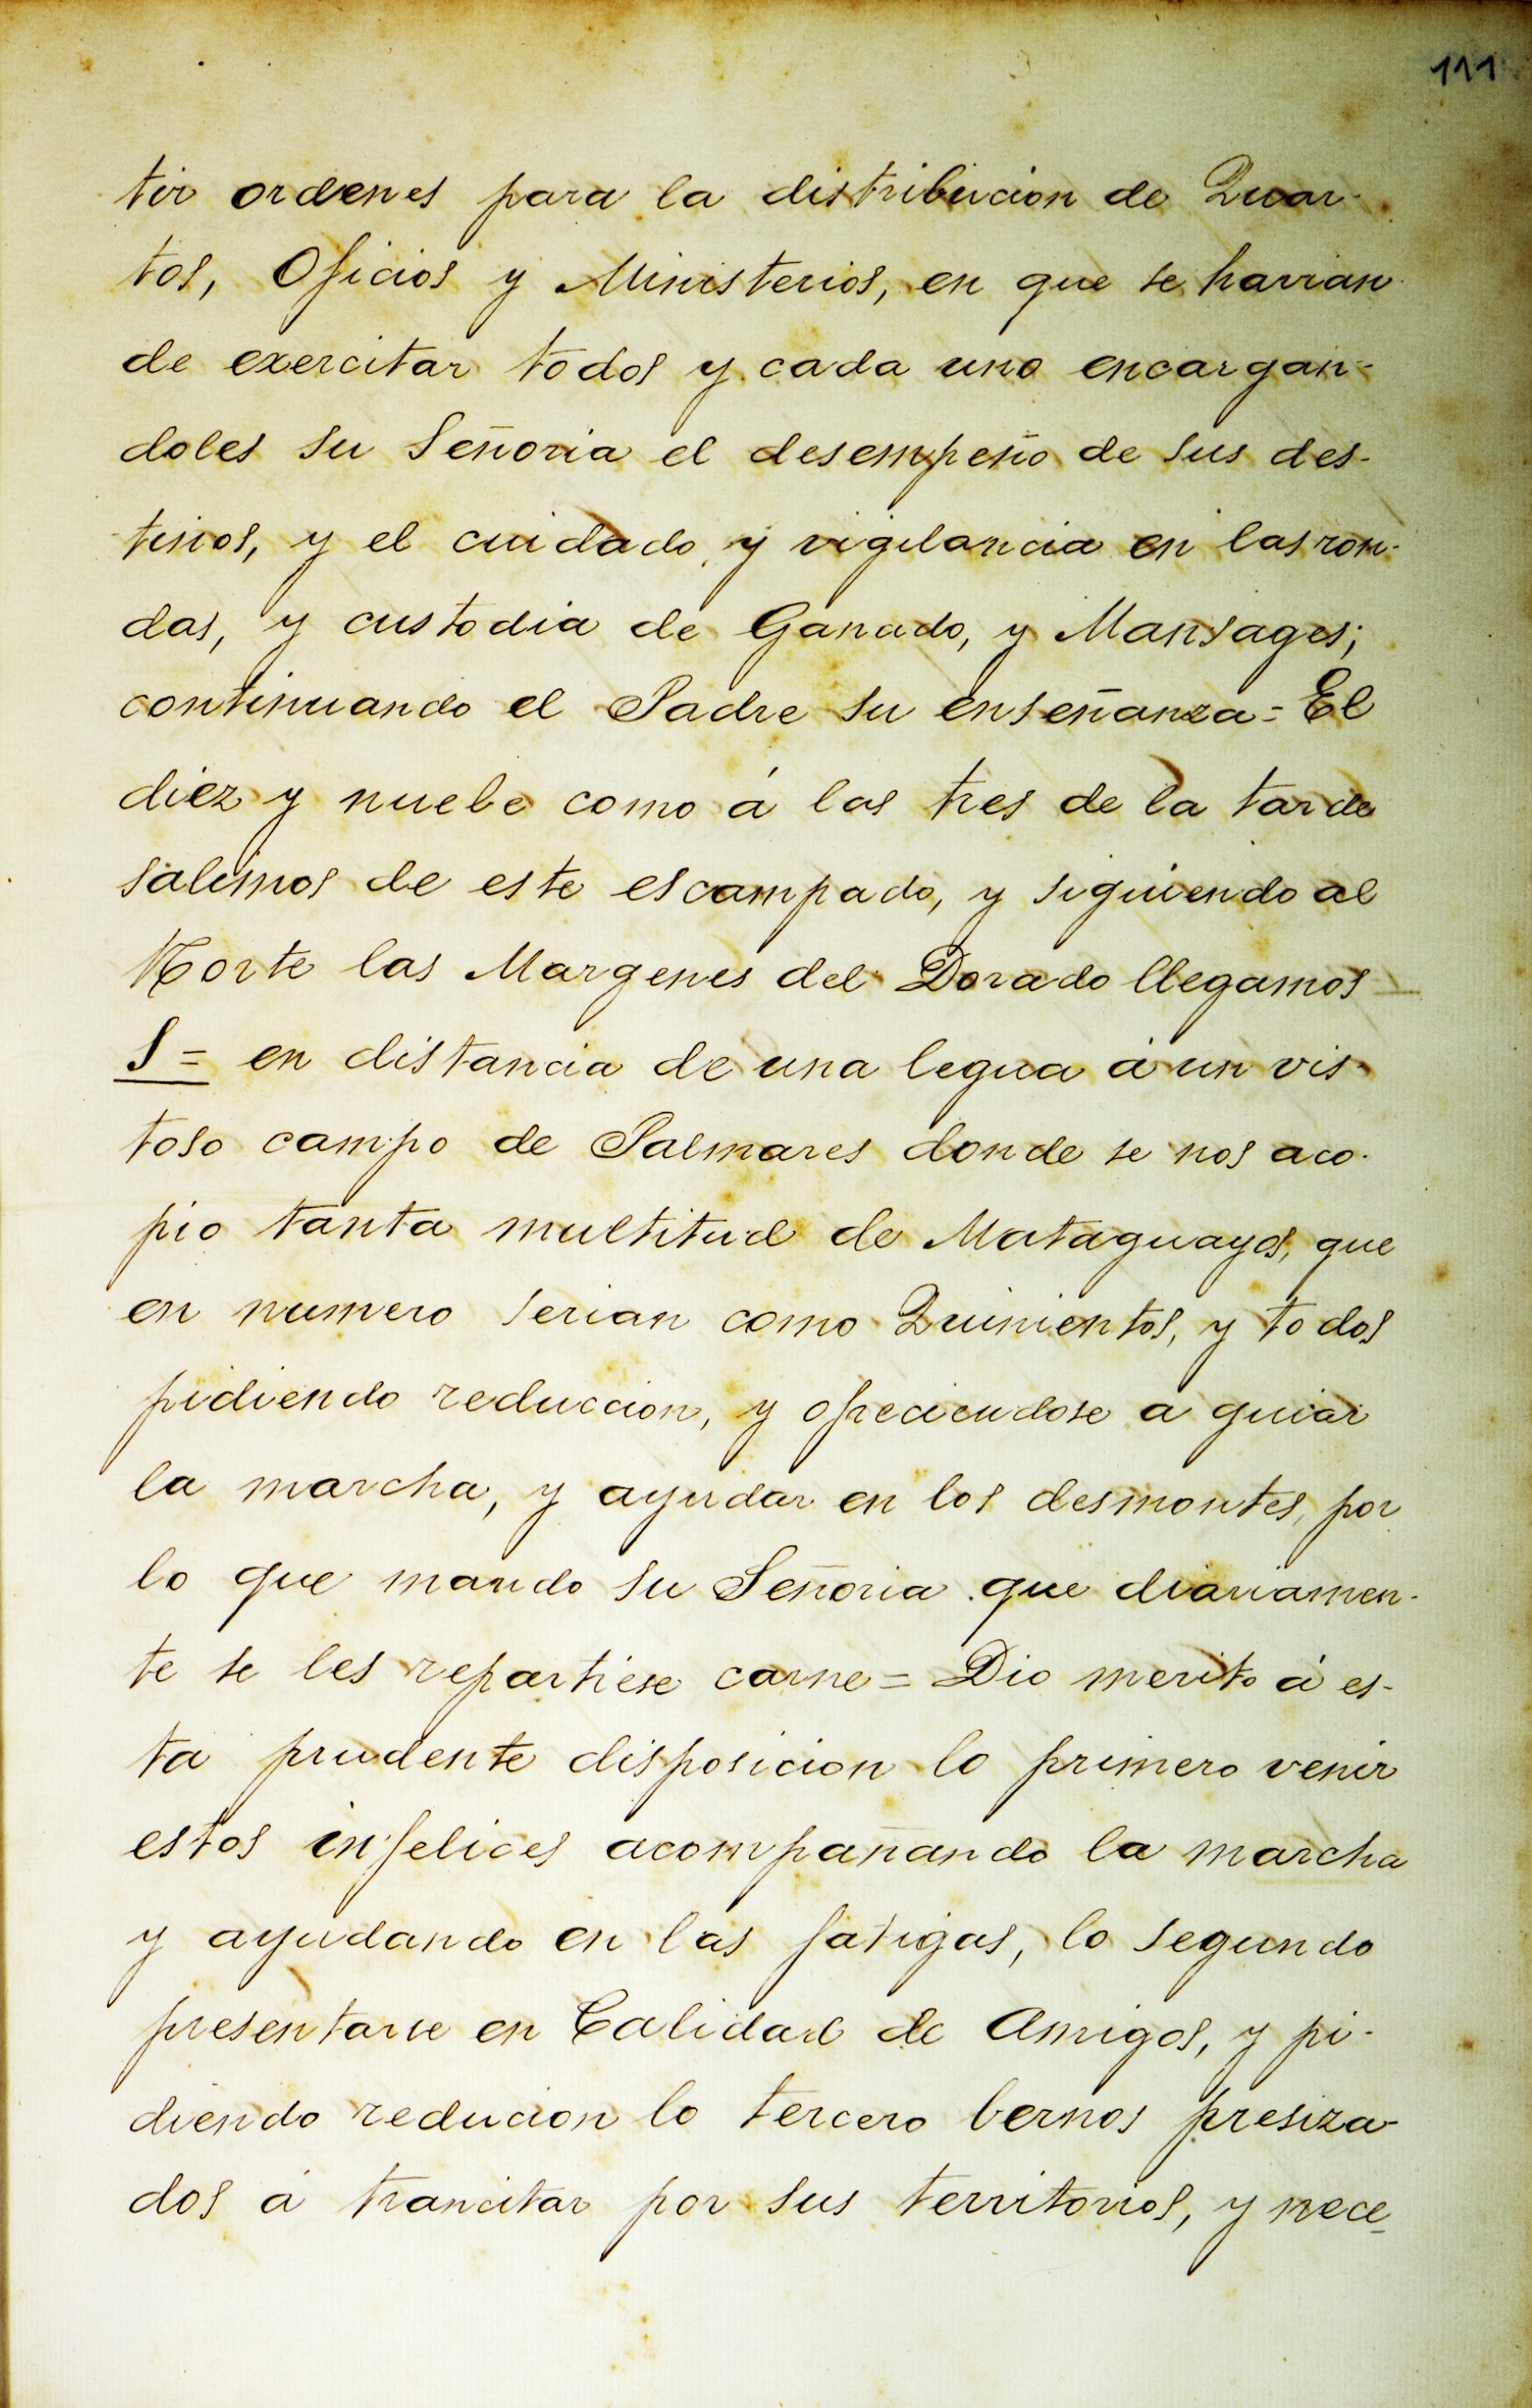 111
tir ordenes para la distribucion de Quar-
tos, Oficios y Ministerios, en que se havian
de exercitar todos y cada uno encargan-
doles su Señoria el desempeño de sus des-
tinos, y el cuidado, y vigilancia en las ron-
das, y custodia de Ganado, y Mansages;
continuando el Padre su enseñanza = El
diez y nuebe como á las tres de la tarde
salimos de este escampado, y siguiendo al
Norte las Margenes del Dorado llegamos
S = en distancia de una legua á un vis-
toso campo de Palmares donde se nos aco-
pio tanta multitud de Mataguayos, que
en numero serian como Quinientos, y todos
pidiendo reduccion, y ofreciendose a guiar
la marcha, y ayudar en los desmontes, por
lo que mando su Señoria que diariamen-
te se les repartiese carne = Dio merito á es-
ta prudente disposicion lo primero venir
estos infelices acompañando la marcha
y ayudando en las fatigas, lo segundo
presentarse en Calidad de Amigos, y pi-
diendo reducion lo tercero bernos presiza-
dos á trancitar por sus territorios, y nece-